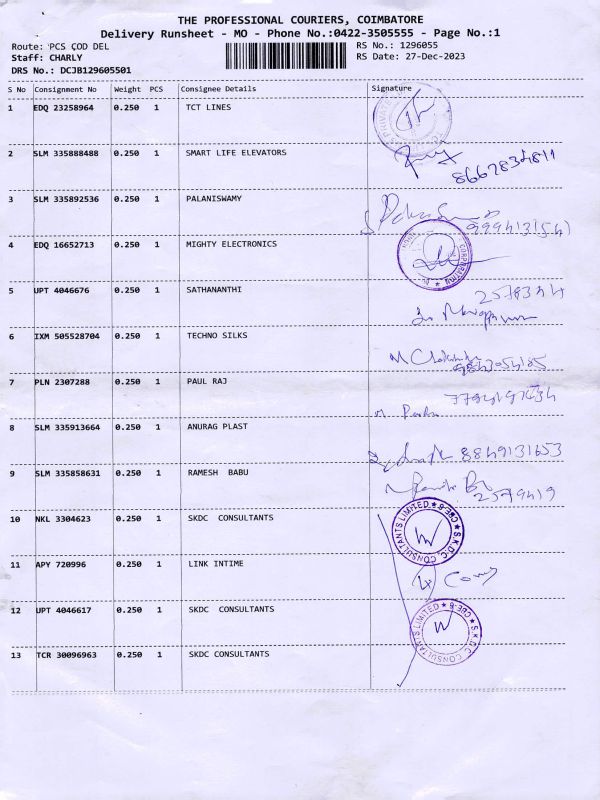 THE PROFESSIONAL COURIERS, COIMBATORE
Delivery Runsheet - MO - Phone No.:0422-3505555 - Page No.:1
Route: PCS COD DEL RS No.: 1296055
Staff: CHARLY RS Date: 27-Dec-2023
DRS No.: DCJB129605501
S No Consignment No Weight PCS Consignee Details Signature
1 EDQ 23258964 0.250 1 TCT LINES
2 SLM 335888488 0.250 1 SMART LIFE ELEVATORS
8667834811
3 SLM 335892536 0.250 1 PALANISWAMY
4 EDQ 16652713 0.250 1 MIGHTY ELECTRONICS
CORPORATION
5 UPT 4046676 0.250 1 SATHANANTHI
6 IXM 505528704 0.250 1 TECHNO SILKS
7 PLN 2307288 0.250 1 PAUL RAJ
8 SLM 335913664 0.250 1 ANURAG PLAST
8849131653
9 SLM 335858631 0.250 1 RAMESH BABU
2579419
10 NKL 3304623 0.250 1 SKDC CONSULTANTS
S.K.D.C. CONSULTANTS LIMITED ★ CBE-6 ★
11 APY 720996 0.250 1 LINK INTIME
12 UPT 4046617 0.250 1 SKDC CONSULTANTS
S.K.D.C. CONSULTANTS LIMITED ★ CBE-6 ★
13 TCR 30096963 0.250 1 SKDC CONSULTANTS